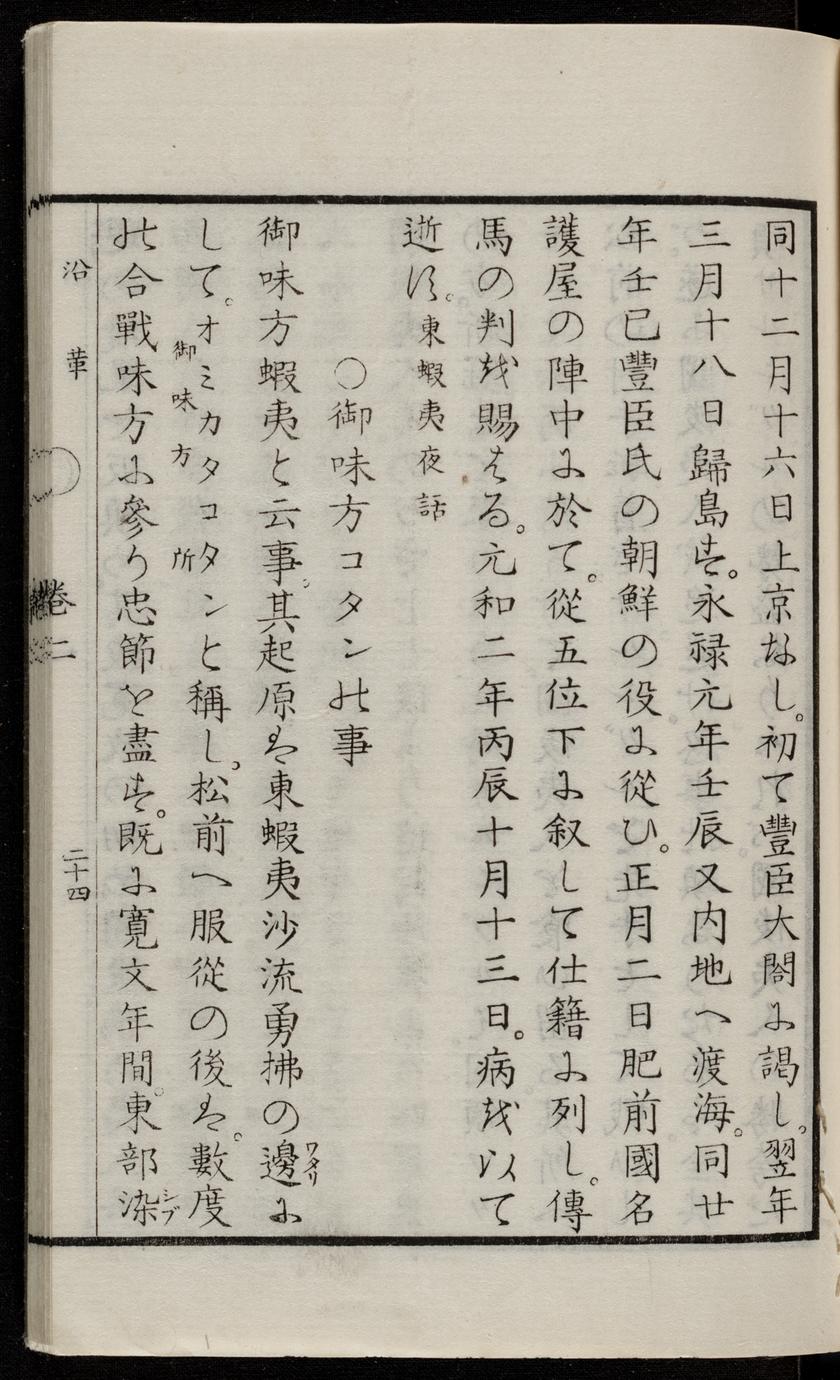 同十二月十六日上京なし。初て豐臣大閤に謁し。翌年
三月十八日歸島す。永禄元年壬辰又内地へ渡海。同廿
年壬巳豐臣氏の朝鮮の役に從ひ。正月二日肥前國名
護屋の陣中に於て。從五位下に叙して仕籍に列し。傳
馬の判を賜はる。元和二年丙辰十月十三日。病を以て
逝す。東蝦夷夜話
○御味方コタンの事
御味方蝦夷と云事。其起原は東蝦夷沙流勇拂の邊ワタリに
して。オミカタコタンと稱し。松前へ服從の後は。數度
御味方所
の合戰味方に參り忠節を盡す。既に寛文年間。東部染シブ
沿革
卷二
二十四